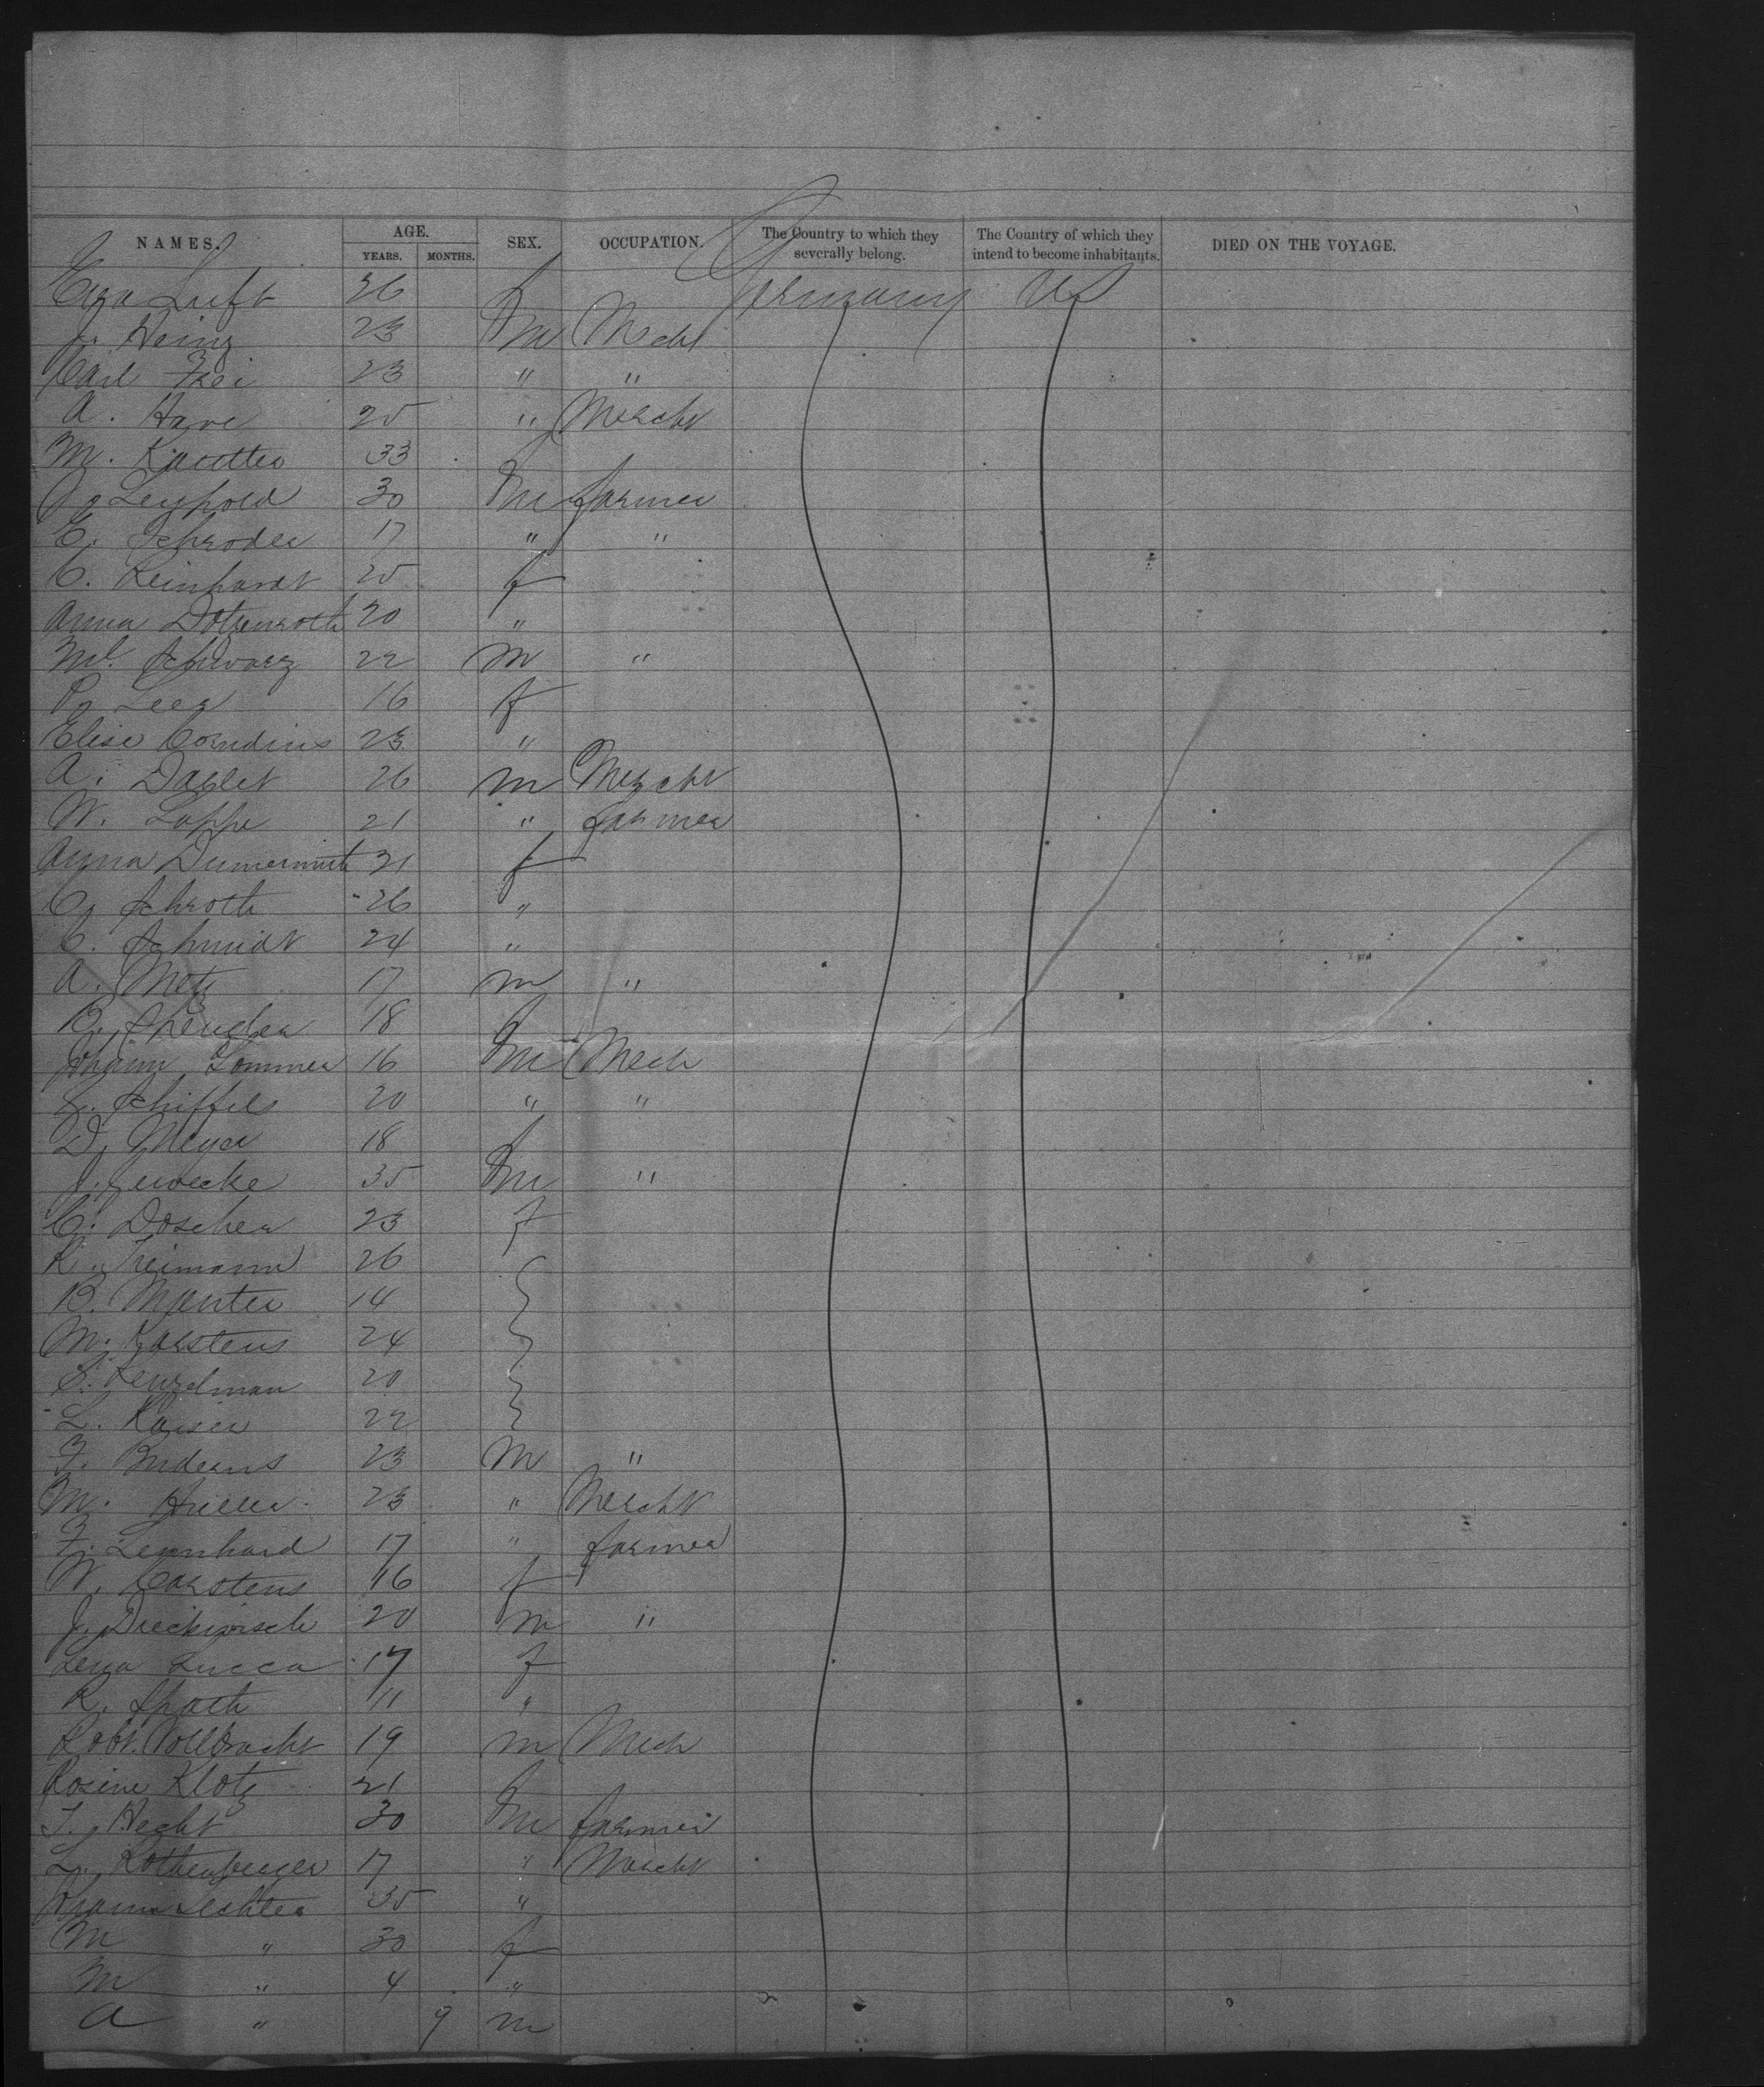 NAMES. AGE. SEX. OCCUPATION. The Country to which they severally belong. The Country of which they intend to become inhabitants. DIED ON THE VOYAGE.
YEARS. MONTHS.
Eva Luft 26 f Germany US
J. Heinz 23 m Mcht
Carl Frei 23 " "
A. Have 25 " Mercht
M. Kautter 33 f
J. Leyhold 30 m farmer
E. Schroder 17 " "
C. Reinhardt 25 f
Anna Dotenroth 20 "
Ml. Schwarz 22 m "
P. Leer 16 f
Elise Cordins 23 "
A. Dablet 26 m Mercht
W. Loppe 21 " farmer
Anna Dumermuth 31 f
C. Schroth 26 "
C. Schmidt 24 "
A. Metz 17 m "
B. Spengler 18 f
Johann Sommer 16 m Mech
L. Schiffels 20 " "
D. Meyer 18 f
J. Jewecke 35 m "
C. Doscher 23 f
R. Freimann 26
B. Manter 14
M. Karstens 24
S. Kenzelman 20
L. Kaiser 22
F. Buderus 23 m "
M. Hiller 23 " Mercht
F. Leonhard 17 " farmer
W. Carstens 16 f
J. Dieckwisch 20 m "
Lena Lucca 17 f
R. Spath 11 "
Robt. Vollbracht 19 m Mech
Rosine Klotz 21 f
J. Hecht 30 m farmer
L. Rothenberger 17 " Mercht
Johann Lechler 35 "
M " 30 f
M " 4 "
A " 9 m